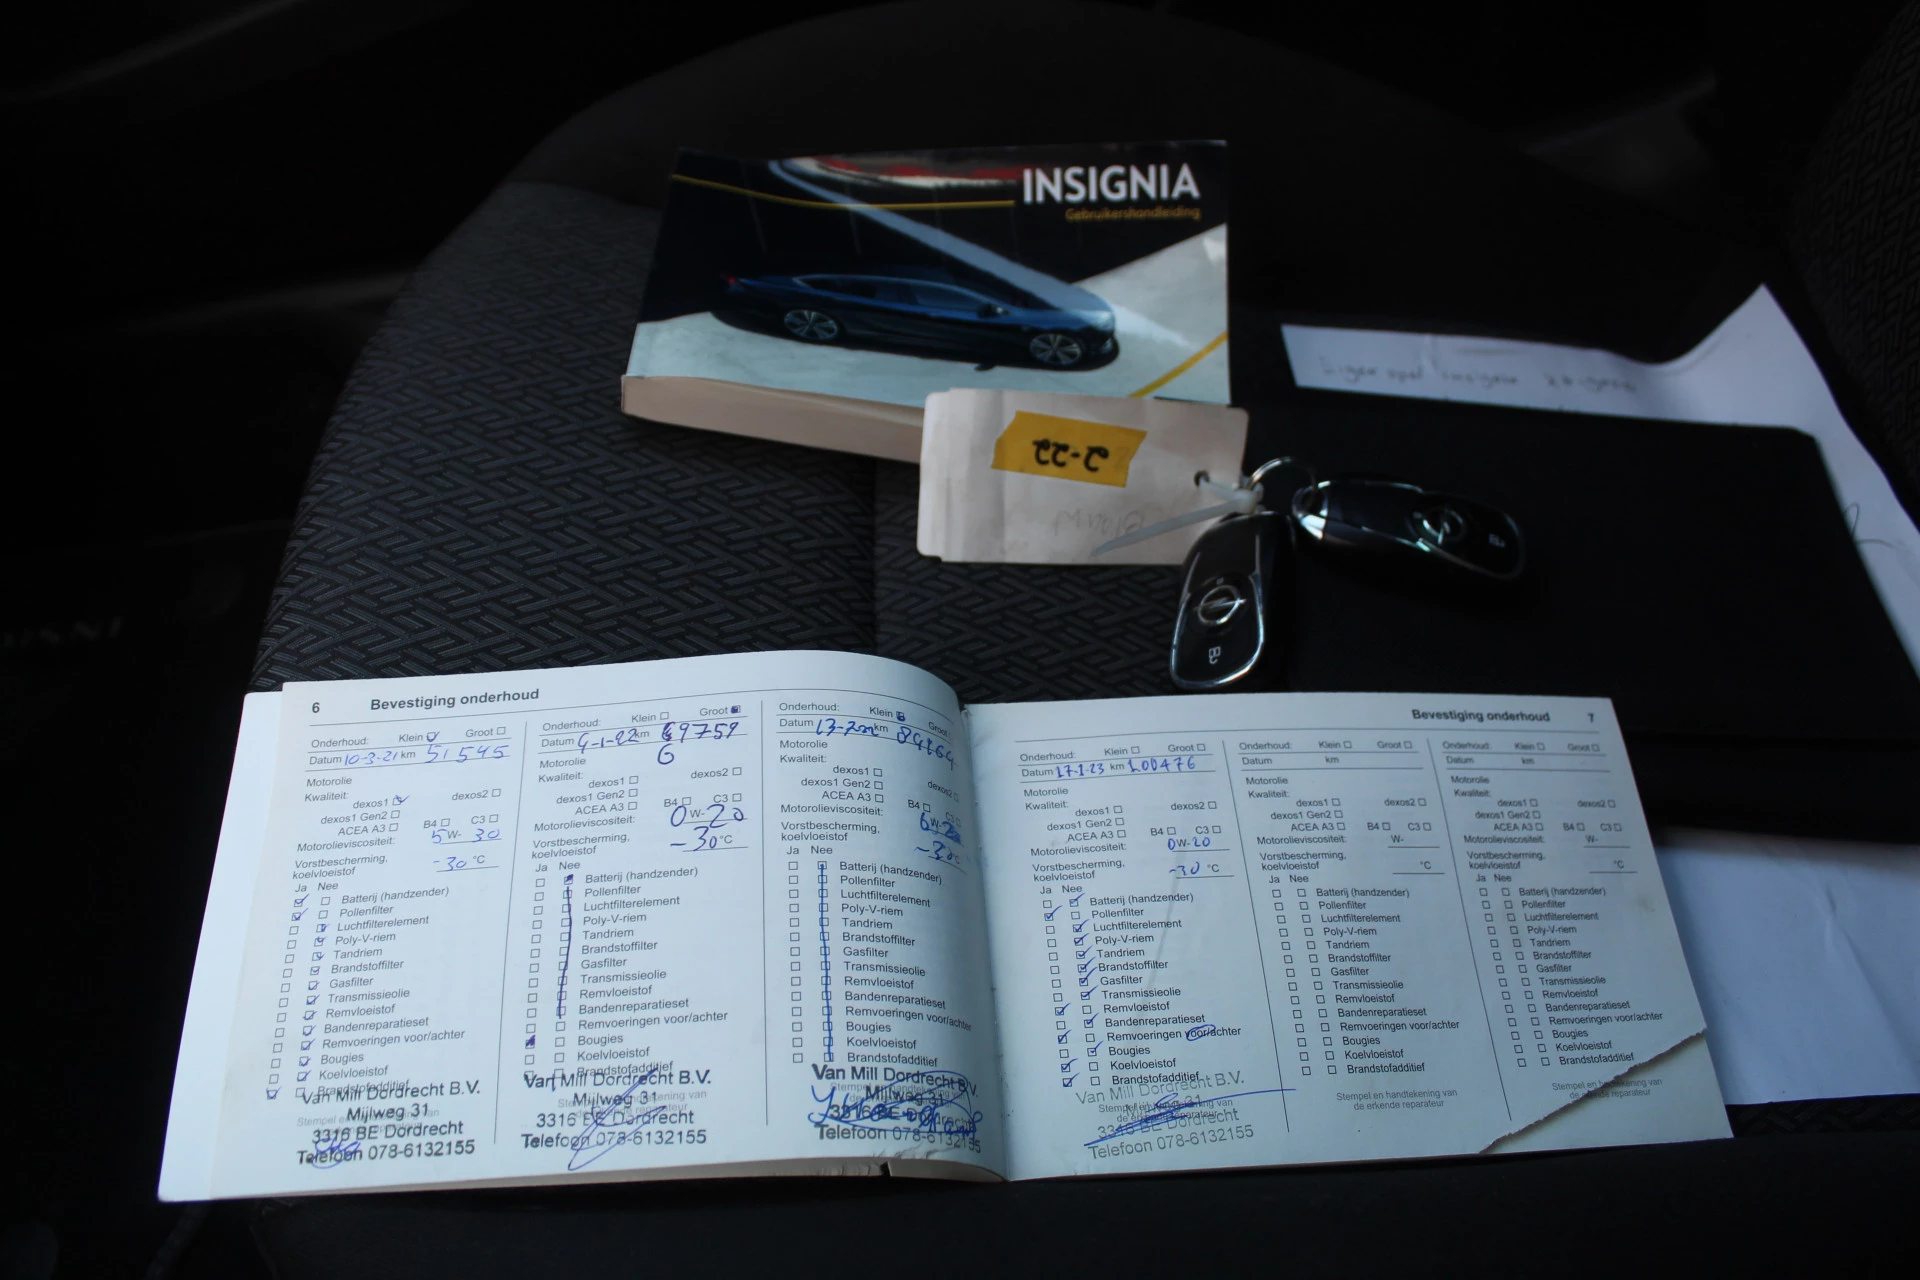 INSIGNIA
Gebruikershandleiding
2-22
6 Bevestiging onderhoud
Onderhoud: Klein Groot
Datum 10-3-21 km 51545
Motorolie
Kwaliteit:
dexos1 dexos2
dexos1 Gen2
ACEA A3 B4 C3
Motorolieviscositeit: 5W-30
Vorstbescherming,
koelvloeistof -30 °C
Ja Nee
Batterij (handzender)
Pollenfilter
Luchtfilterelement
Poly-V-riem
Tandriem
Brandstoffilter
Gasfilter
Transmissieolie
Remvloeistof
Bandenreparatieset
Remvoeringen voor/achter
Bougies
Koelvloeistof
Brandstofadditief
Van Mill Dordrecht B.V.
Mijlweg 31
3316 BE Dordrecht
Telefoon 078-6132155
Onderhoud: Klein Groot
Datum 4-1-22 km 69759
6
Motorolie
Kwaliteit:
dexos1 dexos2
dexos1 Gen2
ACEA A3 B4 C3
Motorolieviscositeit: 0W-20
Vorstbescherming,
koelvloeistof -30 °C
Ja Nee
Batterij (handzender)
Pollenfilter
Luchtfilterelement
Poly-V-riem
Tandriem
Brandstoffilter
Gasfilter
Transmissieolie
Remvloeistof
Bandenreparatieset
Remvoeringen voor/achter
Bougies
Koelvloeistof
Brandstofadditief
Van Mill Dordrecht B.V.
Mijlweg 31
3316 BE Dordrecht
Telefoon 078-6132155
Onderhoud: Klein Groot
Datum km
Motorolie
Kwaliteit:
dexos1 dexos2
dexos1 Gen2
ACEA A3 B4 C3
Motorolieviscositeit:
Vorstbescherming,
koelvloeistof -30 °C
Ja Nee
Batterij (handzender)
Pollenfilter
Luchtfilterelement
Poly-V-riem
Tandriem
Brandstoffilter
Gasfilter
Transmissieolie
Remvloeistof
Bandenreparatieset
Remvoeringen voor/achter
Bougies
Koelvloeistof
Brandstofadditief
Van Mill Dordrecht B.V.
Mijlweg 31
3316 BE Dordrecht
Telefoon 078-6132155
Bevestiging onderhoud 7
Onderhoud: Klein Groot
Datum 17-1-23 km 100476
Motorolie
Kwaliteit:
dexos1 dexos2
dexos1 Gen2
ACEA A3 B4 C3
Motorolieviscositeit: 0W-20
Vorstbescherming,
koelvloeistof -30 °C
Ja Nee
Batterij (handzender)
Pollenfilter
Luchtfilterelement
Poly-V-riem
Tandriem
Brandstoffilter
Gasfilter
Transmissieolie
Remvloeistof
Bandenreparatieset
Remvoeringen voor/achter
Bougies
Koelvloeistof
Brandstofadditief
Van Mill Dordrecht B.V.
Mijlweg 31
3316 BE Dordrecht
Telefoon 078-6132155
Onderhoud: Klein Groot
Datum km
Motorolie
Kwaliteit:
dexos1 dexos2
dexos1 Gen2
ACEA A3 B4 C3
Motorolieviscositeit: W-
Vorstbescherming,
koelvloeistof °C
Ja Nee
Batterij (handzender)
Pollenfilter
Luchtfilterelement
Poly-V-riem
Tandriem
Brandstoffilter
Gasfilter
Transmissieolie
Remvloeistof
Bandenreparatieset
Remvoeringen voor/achter
Bougies
Koelvloeistof
Brandstofadditief
Stempel en handtekening van
de erkende reparateur
Onderhoud: Klein Groot
Datum km
Motorolie
Kwaliteit:
dexos1 dexos2
dexos1 Gen2
ACEA A3 B4 C3
Motorolieviscositeit: W-
Vorstbescherming,
koelvloeistof °C
Ja Nee
Batterij (handzender)
Pollenfilter
Luchtfilterelement
Poly-V-riem
Tandriem
Brandstoffilter
Gasfilter
Transmissieolie
Remvloeistof
Bandenreparatieset
Remvoeringen voor/achter
Bougies
Koelvloeistof
Brandstofadditief
Stempel en handtekening van
de erkende reparateur